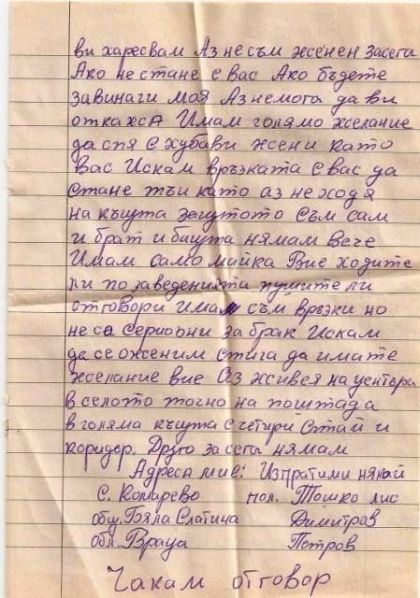 ви харесвам Аз несъм женен засега
Ако не стане с вас Ако бъдете
завинаги моя Аз немога да ви
откажа Имам голямо желание
да спя с хубави жени като
вас Искам връзката с вас да
стане тъй като аз не ходя
на къщта защтото съм сам
и брат и бащта нямам вече
Имам само майка Вие ходите
ли по заведенията пушите ли
отговори имал съм връзки но
не са сериони за брак Искам
да се оженим стига да имате
желание вие аз живея на центъра
в селото точно на поштада
в голяма къщта с четири стаи и
коридор. Друго засега нямам
Адреса ми е: Изпратими някой
с. Комарево пол. Тошко лис
общ. Бяла Слатина Димитров
обл. Враца Петров
Чакам отговор